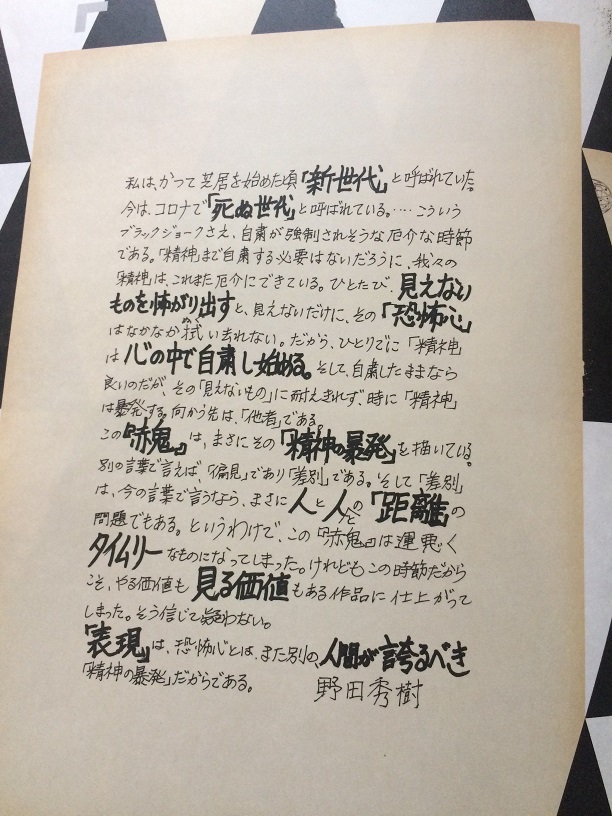 私は、かつて芝居を始めた頃「新世代」と呼ばれていた。
今は、コロナで「死ぬ世代」と呼ばれている。‥‥こういう
ブラックジョークさえ、自粛が強制されそうな厄介な時節
である。「精神」まで自粛する必要はないだろうに、我々の
「精神」は、これまた厄介にできている。ひとたび、見えない
ものを怖がり出すと、見えないだけに、その「恐怖心」
はなかなか拭い去れない。だから、ひとりでに「精神」
は心の中で自粛し始める。そして、自粛したままなら
良いのだが、その「見えないもの」に耐えきれず、時に「精神」
は暴発する。向かう先は、「他者」である。
この『赤鬼』は、まさにその「精神の暴発」を描いている。
別の言葉で言えば、「偏見」であり「差別」である。そして「差別」
は、今の言葉で言うなら、まさに人と人との「距離」の
問題でもある。というわけで、この『赤鬼』は運悪く
タイムリーなものになってしまった。けれどもこの時節だから
こそ、やる価値も見る価値もある作品に仕上がって
しまった。そう信じて疑わない。
「表現」は、恐怖心とは、また別の、人間が誇るべき
「精神の暴発」だからである。
野田秀樹